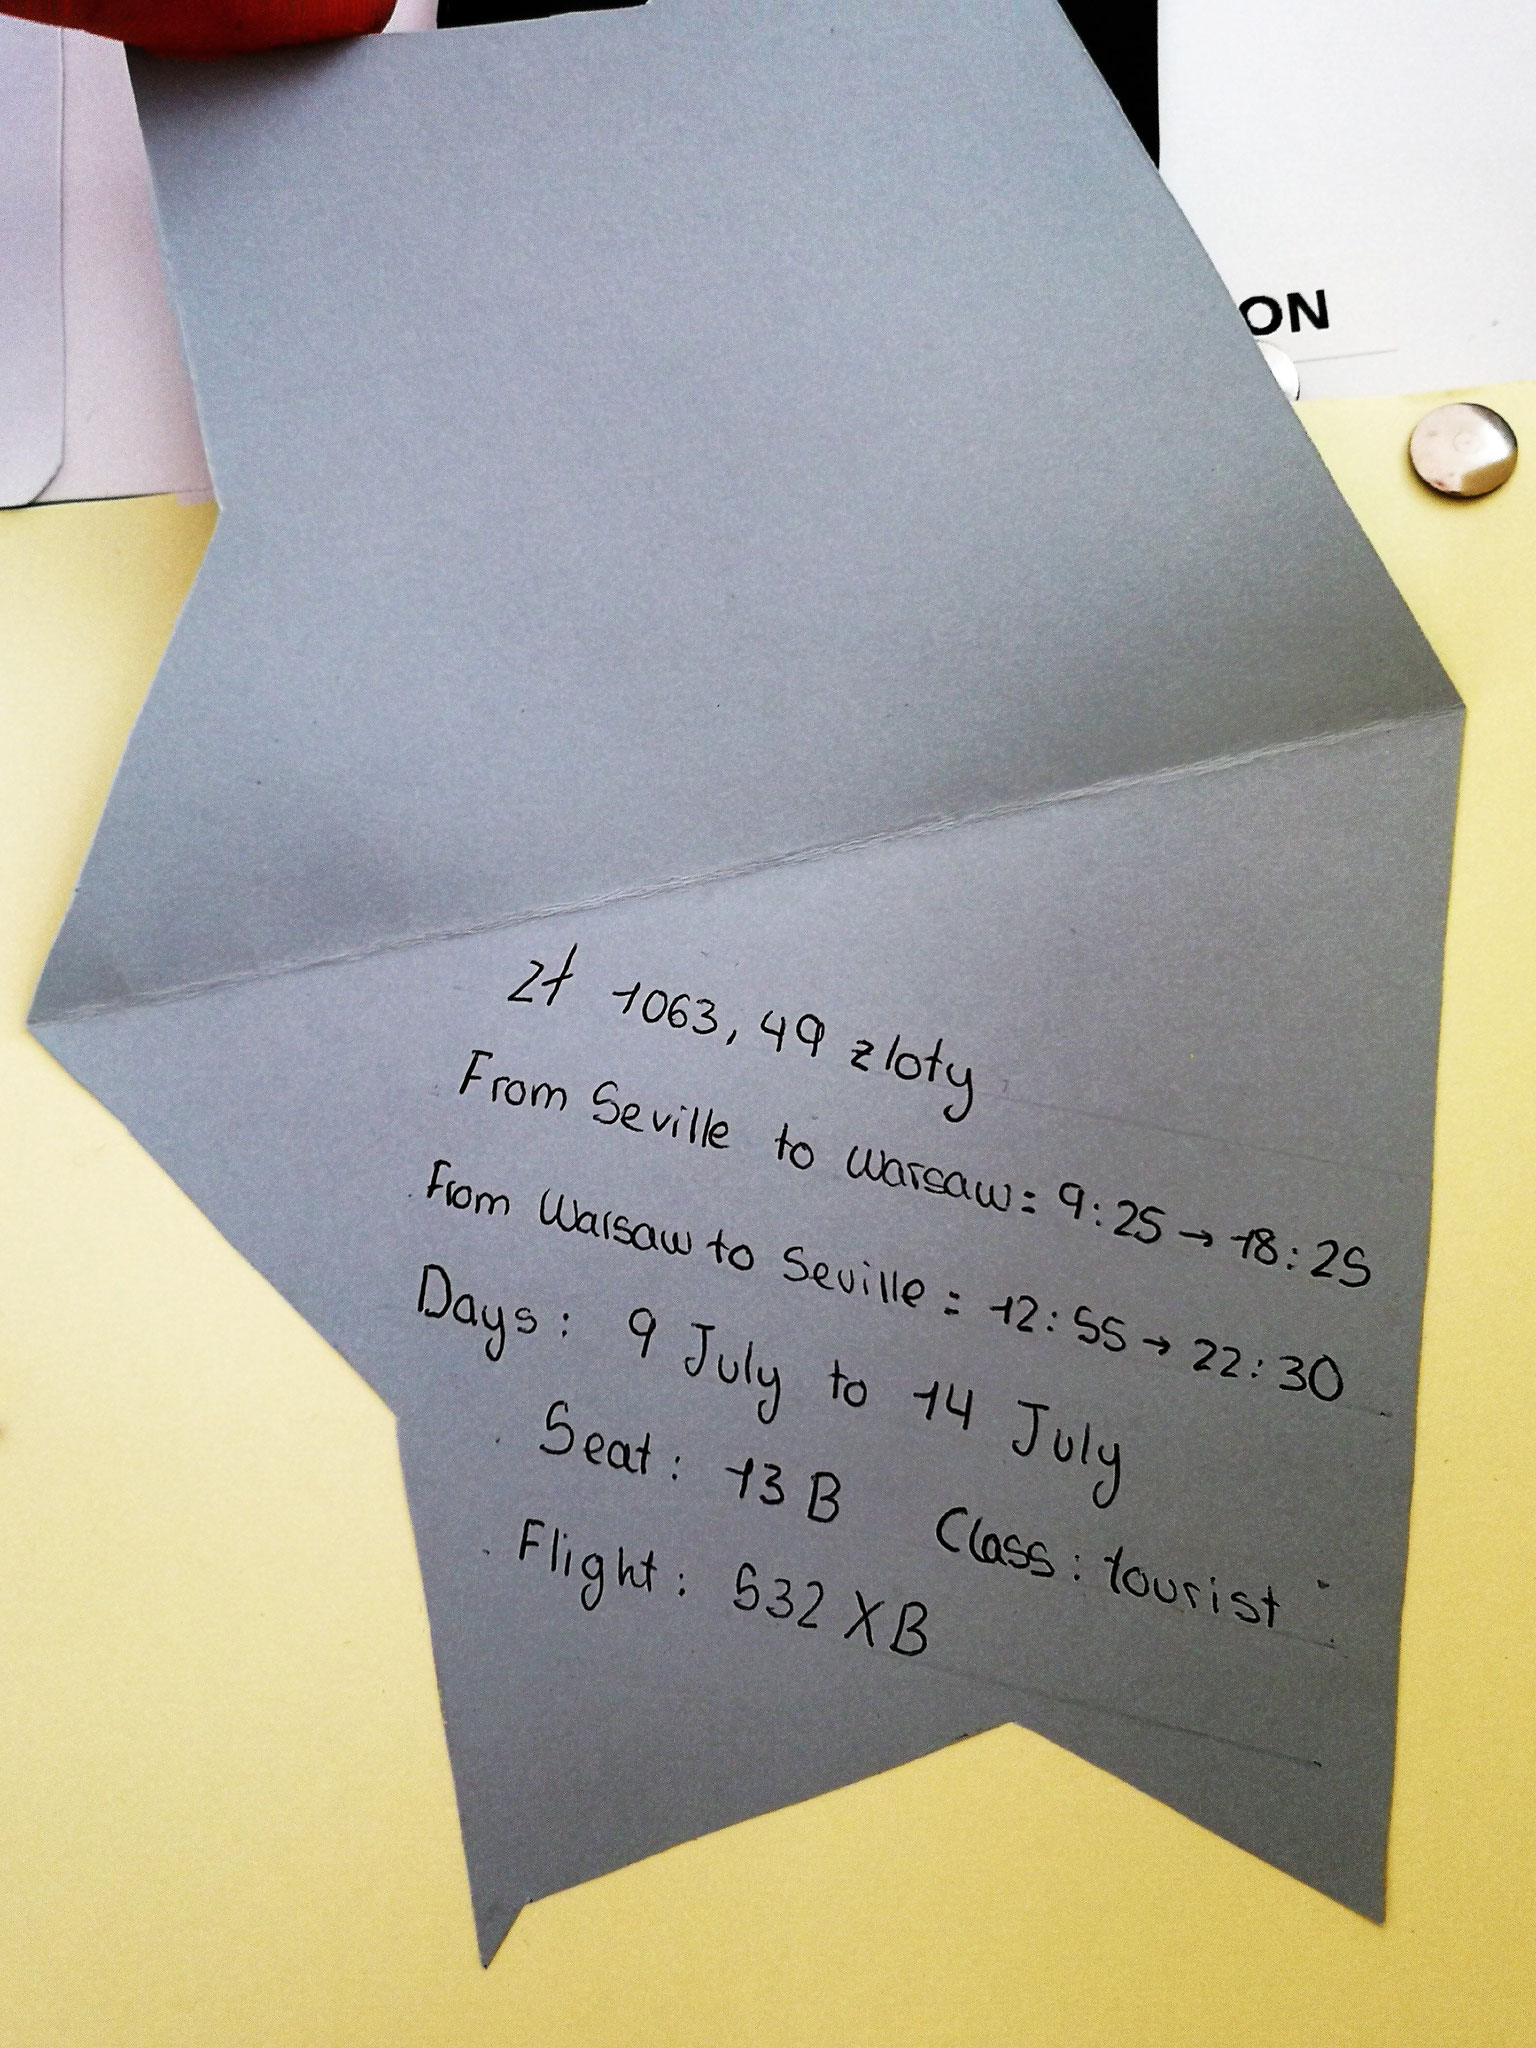 ON
zł 1063,49 zloty
From Seville to Warsaw: 9:25 → 18:25
From Warsaw to Seville: 12:55 → 22:30
Days: 9 July to 14 July
Seat: 13B Class: tourist
Flight: 532XB